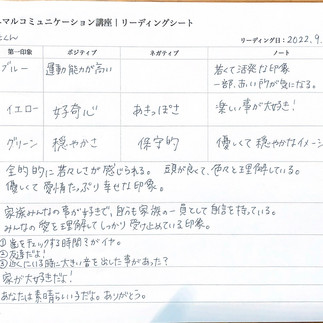 マルコミュニケーション講座 | リーディングシート
くん
リーディング日：2022.9.
第一印象 ポジティブ ネガティブ ノート
ブルー 運動能力が高い 若くて活発な印象
一部、
が気になる。
イエロー 好奇心 あきっぽさ 楽しい事が大好き！
グリーン 穏やかさ 保守的 優しくて穏やかなイメージ
全的的に若々しさが感じられる。 頭が良くて、色々と理解している。
優しくて愛情たっぷり幸せな印象。
家族みんなの事が好きで、自らも家族の一員として自信を持っている。
みんなの愛を理解してしっかり受け止めている印象。
チェックする時間がイヤ。
②友達だよ！
③近くにいる時に大きい音を出した事があった？
家が大好きだよ！
あなたは素晴らしい子だよ。ありがとう。